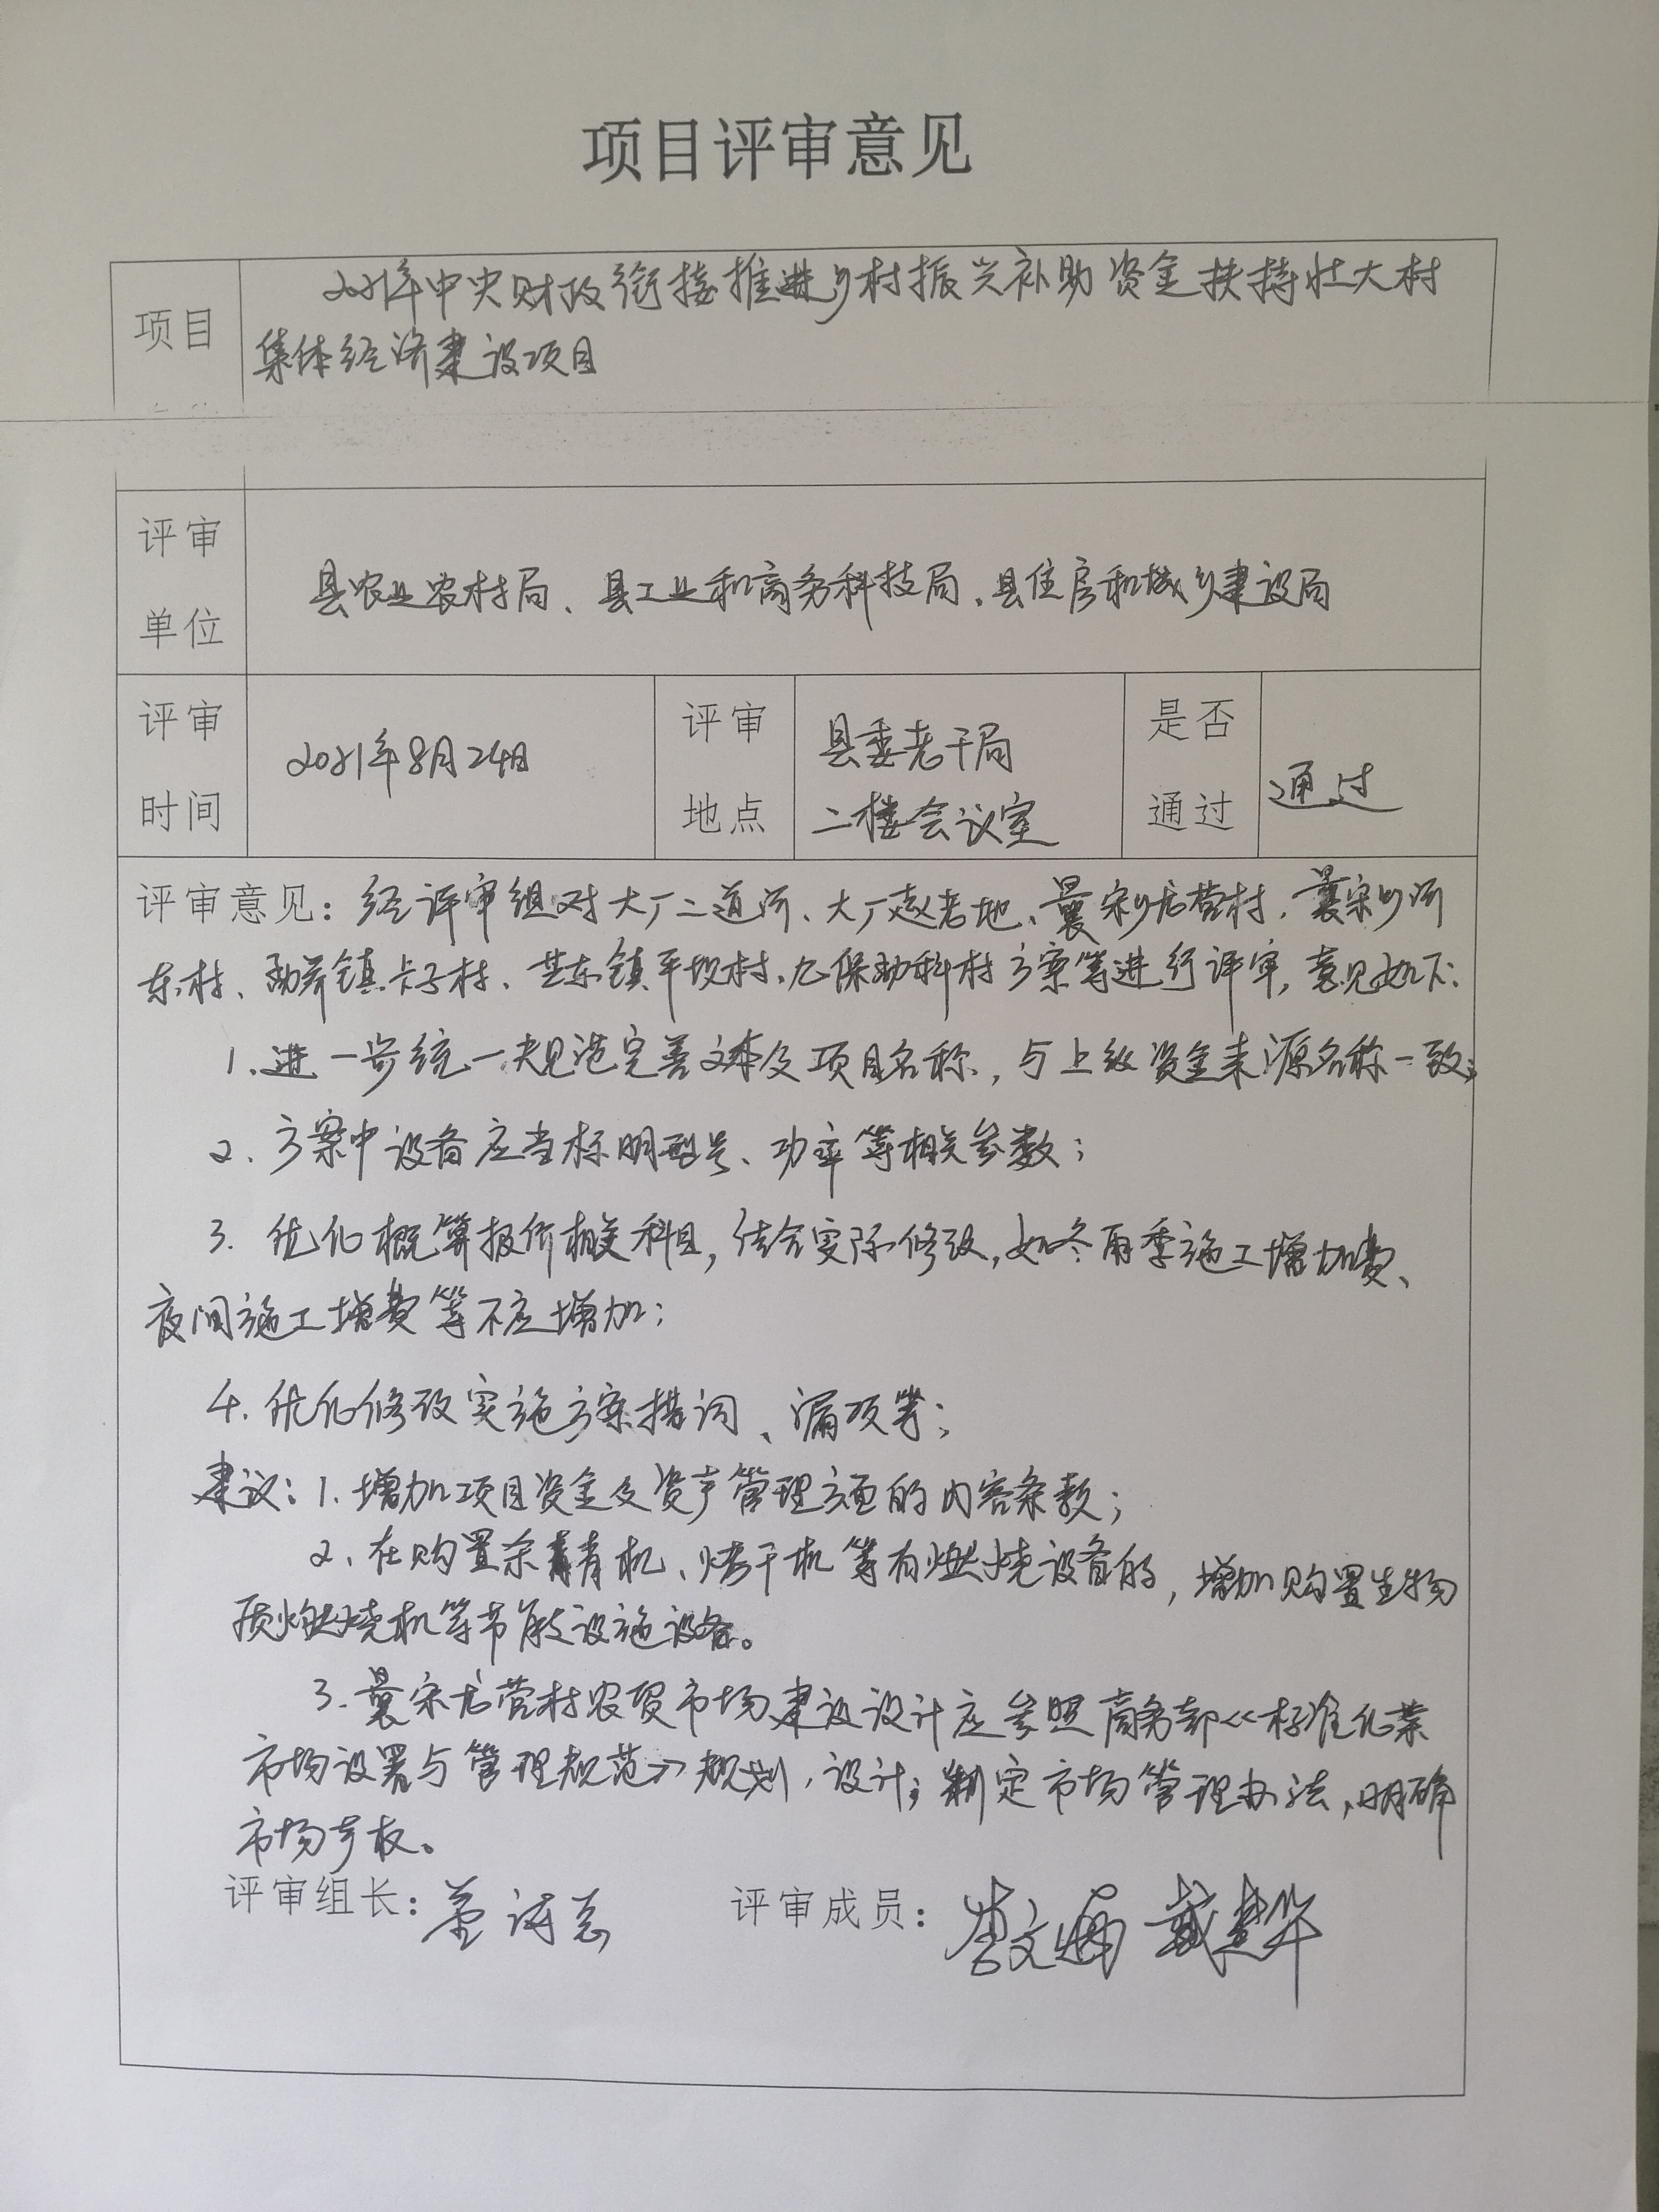 项目评审意见
项目
2021年中央财政衔接推进乡村振兴补助资金扶持壮大村
集体经济建设项目
评审
单位
县农业农村局、县工业和商务科技局、县住房和城乡建设局
评审
时间
2021年8月24日
评审
地点
县委老干局
二楼会议室
是否
通过
通过
评审意见：经评审组对大厂二道河、大厂赵老地、曩宋乡龙营村、曩宋乡河
东村、勐养镇卡子村、芒东镇平坝村、九保勐科村方案等进行评审，意见如下：
1.进一步统一规范完善文本及项目名称，与上级资金来源名称一致；
2、方案中设备应当标明型号、功率等相关参数；
3. 优化概算报价相关科目，结合实际修改，如冬雨季施工增加费、
夜间施工增费等不应增加；
4.优化修改实施方案措词、漏项等；
建议：1.增加项目资金及资产管理方面的内容条款；
2、在购置杀青机、烤干机等有燃烧设备的，增加购置生物
质燃烧机等节能设施设备。
3.曩宋龙营村农贸市场建设设计应参照商务部《标准化菜
市场设置与管理规范》规划、设计；制定市场管理办法，明确
市场产权。
评审组长：
评审成员：